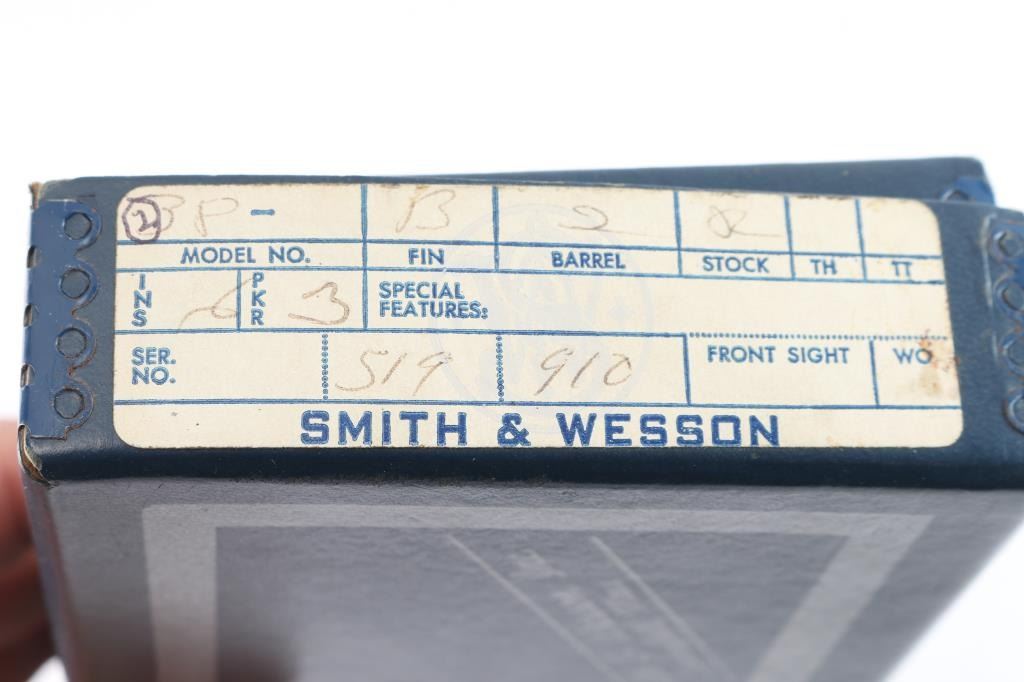 2 BP- B 2 R
MODEL NO. FIN BARREL STOCK TH TT
INS PKR 3 SPECIAL FEATURES:
SER. NO. 519 910 FRONT SIGHT WO
SMITH & WESSON